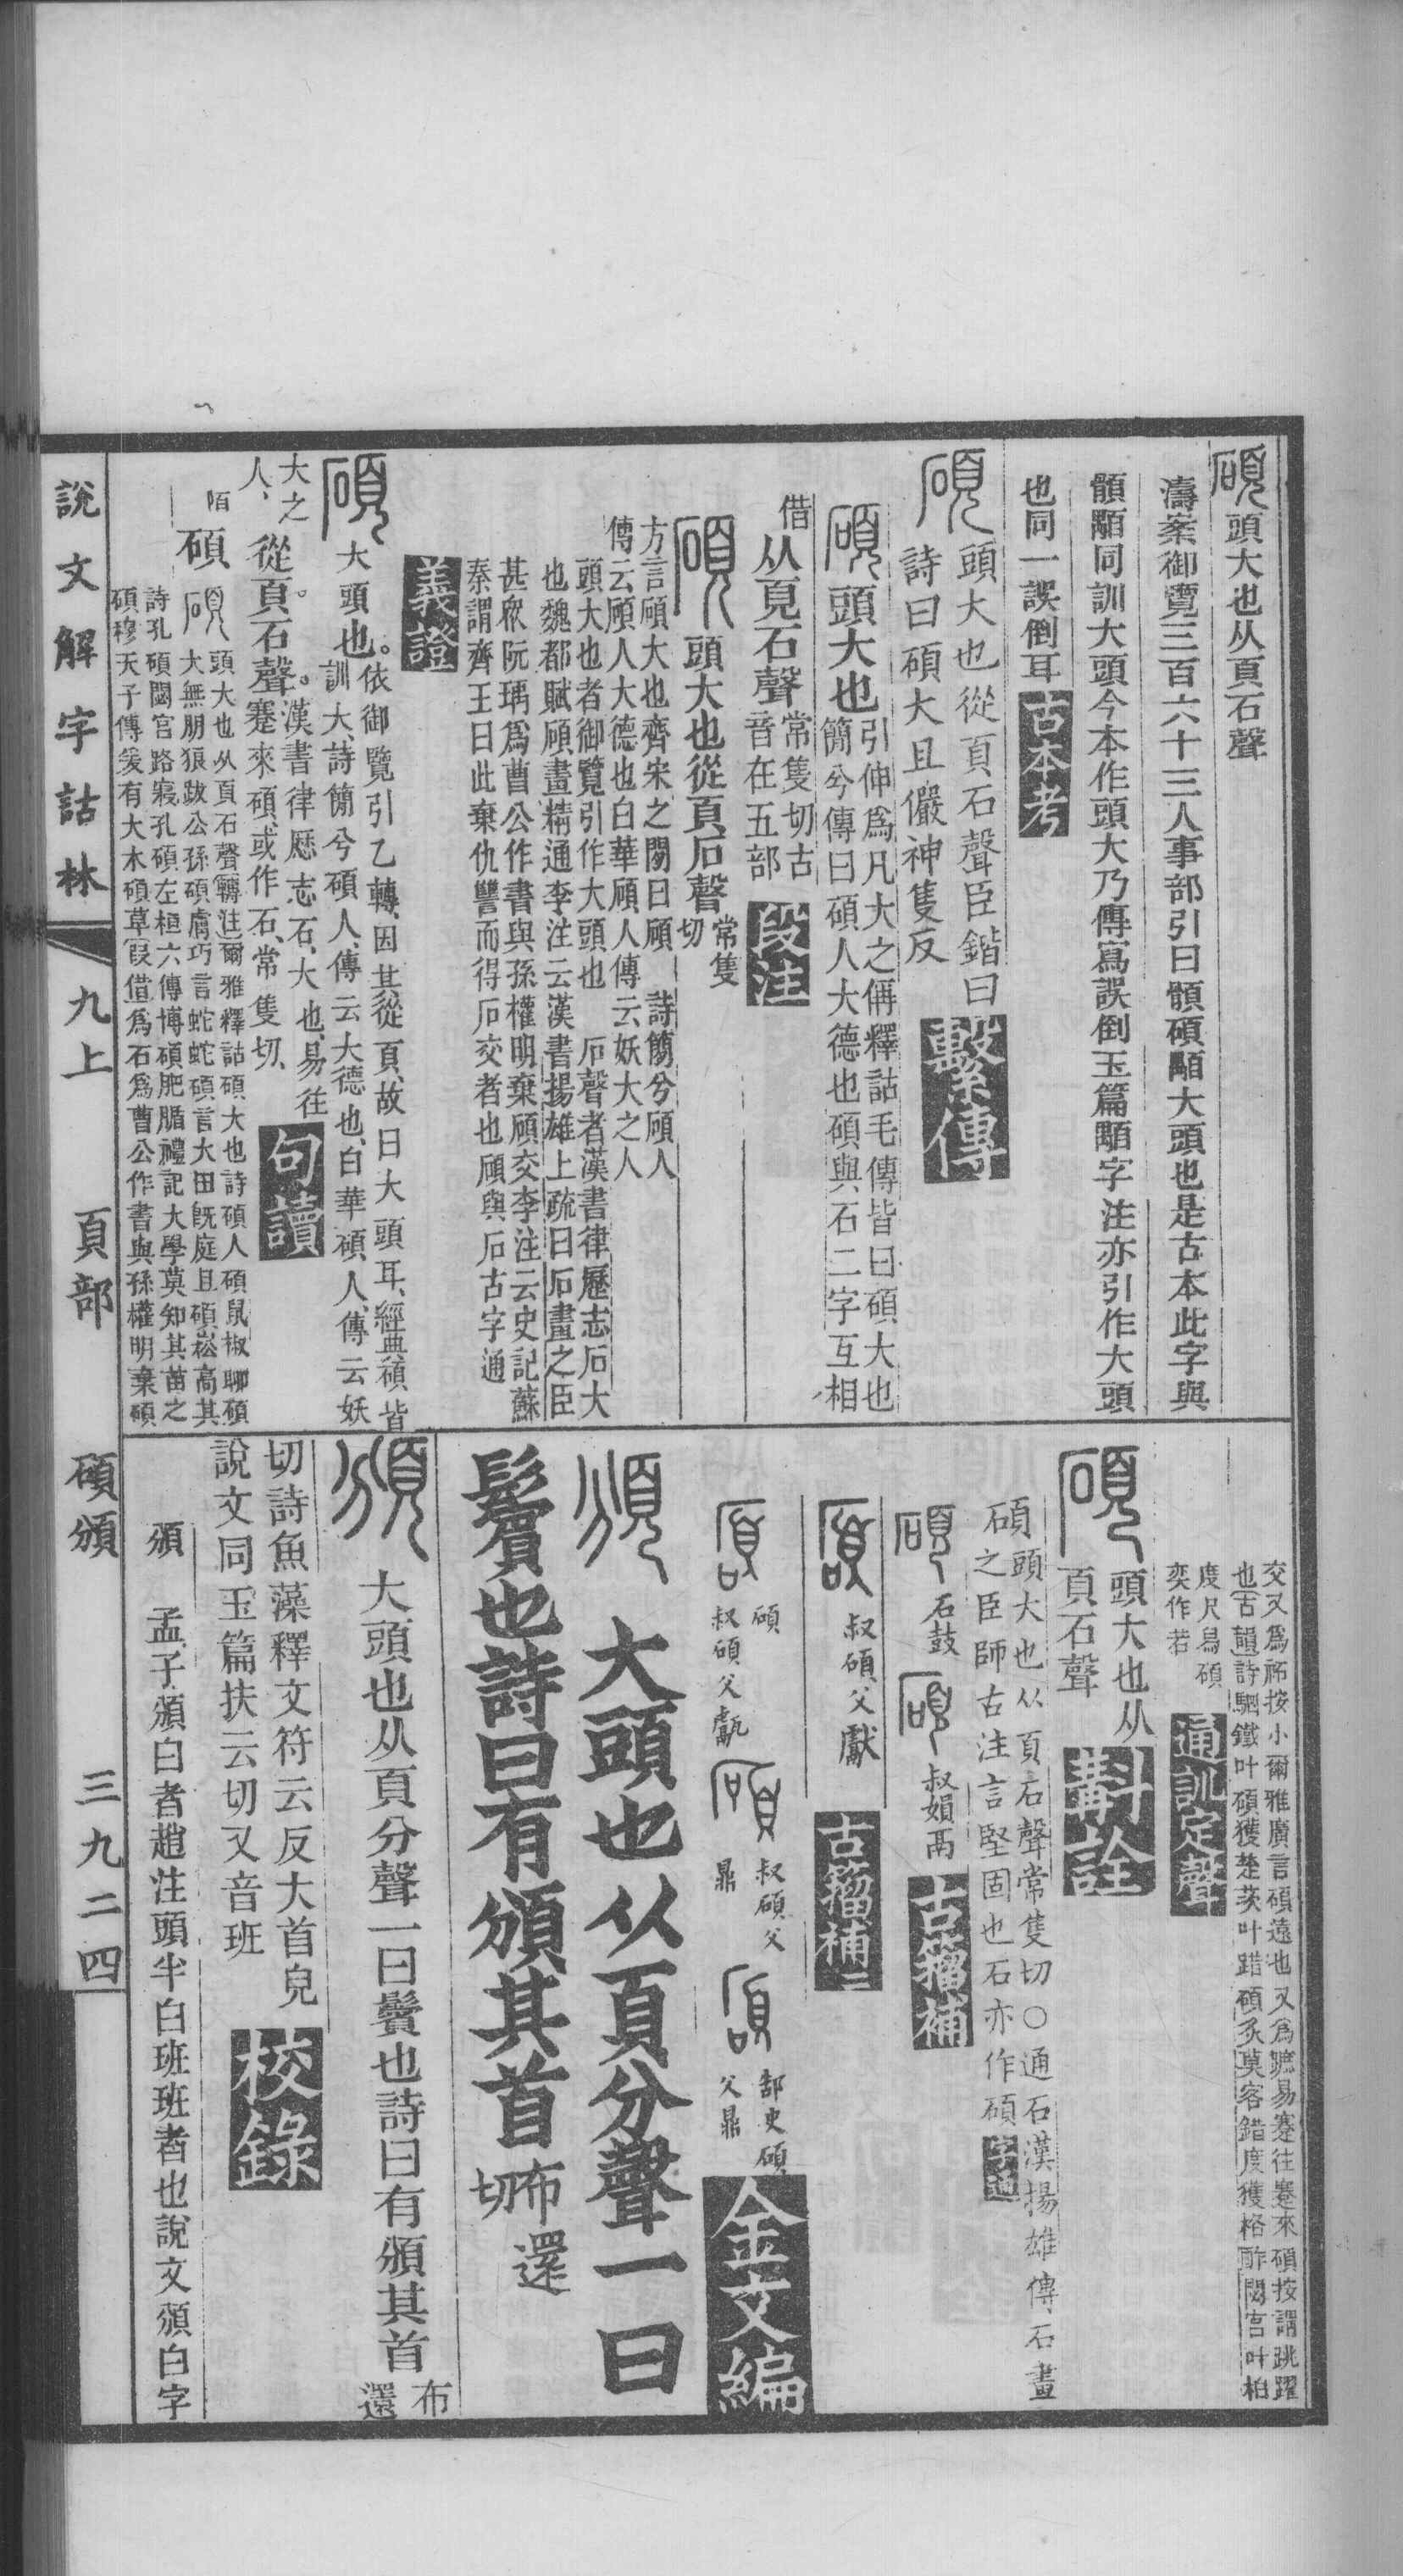 碩頭大也从頁石聲
濤案御覽三百六十三人事部引曰顝碩顒大頭也是古本此字與
顝顒同訓大頭今本作頭大乃傳寫誤倒玉篇顒字注亦引作大頭
也同一誤倒耳古本考
碩頭大也從頁石聲臣鍇曰
詩曰碩大且儼神隻反繫傳
碩頭大也引伸爲凡大之偁釋詁毛傳皆曰碩大也
簡兮傳曰碩人大德也碩與石二字互相
借从頁石聲常隻切古
音在五部段注
碩頭大也從頁石聲常隻
切
方言碩大也齊宋之閒曰碩 詩簡兮碩人
傳云碩人大德也白華碩人傳云妖大之人
頭大也者御覽引作大頭也 石聲者漢書律歷志石大
也魏都賦碩畫精通李注云漢書揚雄上疏曰石畫之臣
甚衆阮瑀爲曹公作書與孫權明棄碩交李注云史記蘇
秦謂齊王曰此棄仇讐而得石交者也碩與石古字通
義證
碩大頭也。依御覽引乙轉、因其從頁、故曰大頭耳、經典碩皆
訓大、詩簡兮碩人、傳云大德也、白華碩人、傳云妖
大之
人、從頁。石聲。漢書律厯志石、大也、易往
蹇來碩、或作石、常隻切、句讀
陌 碩 碩頭大也从頁石聲轉注爾雅釋詁碩大也詩碩人碩鼠椒聊碩
大無朋狼跋公孫碩膚巧言蛇蛇碩言大田旣庭且碩崧高其
詩孔碩閟宮路寢孔碩左桓六傳博碩肥腯禮記大學莫知其苗之
碩穆天子傳爰有大木碩草假借爲石爲曹公作書與孫權明棄碩
交又爲祏按小爾雅廣言碩遠也又爲蹠易蹇往蹇來碩按謂跳躍
也古韻詩駟鐵叶碩獲楚茨叶踖碩炙莫客錯度獲格酢閟宮叶柏
度尺舃碩
奕作若通訓定聲
碩頭大也从
頁石聲斠詮
碩頭大也从頁石聲常隻切○通石漢揚雄傳、石畫
之臣師古注言堅固也石亦作碩字通
碩石鼓碩叔媢鬲古籀補
碩叔碩父甗古籀補二
碩碩
叔碩父甗碩叔碩父
鼎碩郜史碩
父鼎金文編
頒大頭也从頁分聲一曰
鬢也詩曰有頒其首布還
切
頒大頭也从頁分聲一曰鬢也詩曰有頒其首布
還
切詩魚藻釋文符云反大首皃
說文同玉篇扶云切又音班校錄
頒 孟子頒白者趙注頭半白班班者也說文頒白字
說文解字詁林 九上 頁部 碩頒 三九二四